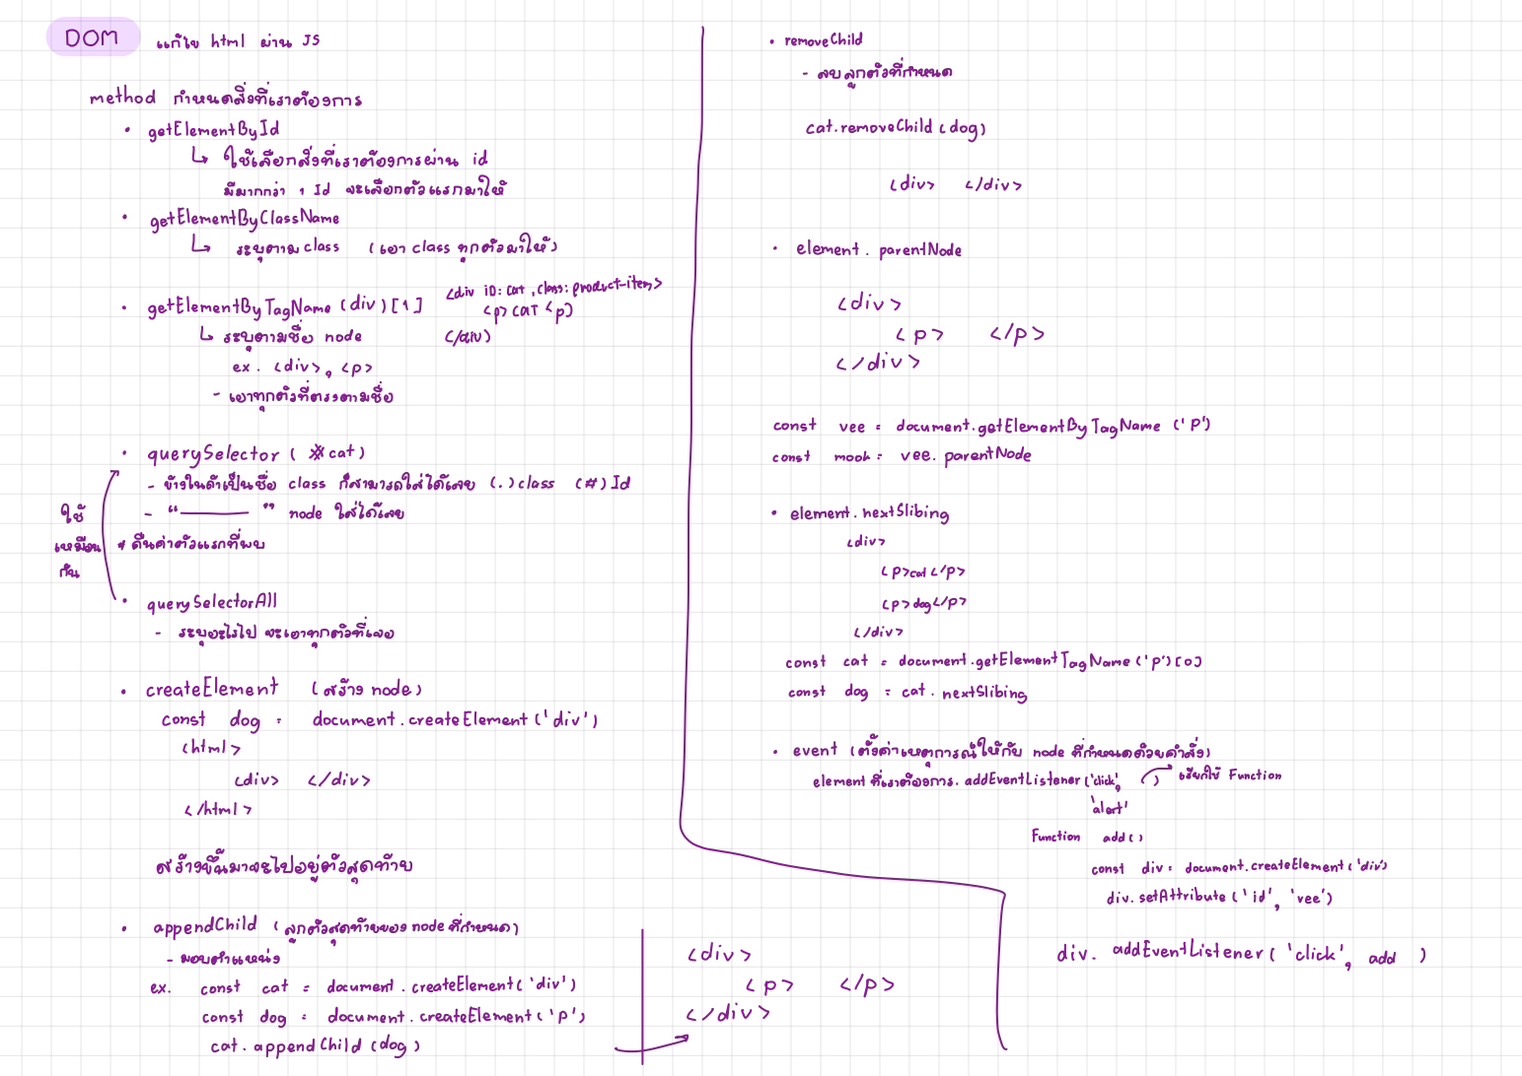 DOM แก้ไข html ผ่าน JS
method กำหนดสิ่งที่เราต้องการ
• getElementById
↳ ใช้เลือกสิ่งที่เราต้องการผ่าน id
มีมากกว่า 1 Id จะเลือกตัวแรกมาให้
• getElementByClassName
↳ ระบุตาม class (เอา class ทุกตัวมาให้)
• getElementByTagName (div)[1]
↳ ระบุตามชื่อ node
ex. <div>, <p>
- เอาทุกตัวที่ตรงตามชื่อ
<div iD: cat, class: product-item>
<p> CAT <p>
</div>
• querySelector ( #cat)
- ข้างในถ้าเป็นชื่อ class ก็สามารถใส่ได้เลย (.) class (#) Id
- “———” node ใส่ได้เลย
* คืนค่าตัวแรกที่พบ
ใช้
เหมือน
กัน
• querySelectorAll
- ระบุอะไรไป จะเอาทุกตัวที่เจอ
• createElement (สร้าง node)
const dog = document.createElement('div')
<html>
<div> </div>
</html>
สร้างขึ้นมาจะไปอยู่ตัวสุดท้าย
• appendChild (ลูกตัวสุดท้ายของ node ที่กำหนด)
- มอบตำแหน่ง
ex. const cat = document.createElement('div')
const dog = document.createElement('p')
cat.appendChild(dog)
<div>
<p> </p>
</div>
• removeChild
- ลบลูกตัวที่กำหนด
cat.removeChild(dog)
<div> </div>
• element.parentNode
<div>
<p> </p>
</div>
const vee = document.getElementByTagName ('P')
const mook = vee.parentNode
• element.nextSlibing
<div>
<p>cat</p>
<p>dog</p>
</div>
const cat = document.getElementTagName('p')[0]
const dog = cat.nextSlibing
• event (ตั้งค่าเหตุการณ์ให้กับ node ที่กำหนดด้วยคำสั่ง)
element ที่เราต้องการ.addEventListener('click', ) เรียกใช้ Function
'alert'
Function add()
const div = document.createElement('div')
div.setAttribute('id', 'vee')
div.addEventListener('click', add )